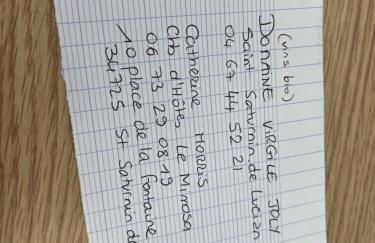 (vins bio)
DOMAINE VIRGILE JOLY
Saint Saturnin de Lucian
04 67 44 52 21
Catherine MORRIS
Chb d'Hôtes Le Mimosa
06 73 29 08 19
10 place de la fontaine
34725 St Saturnin de